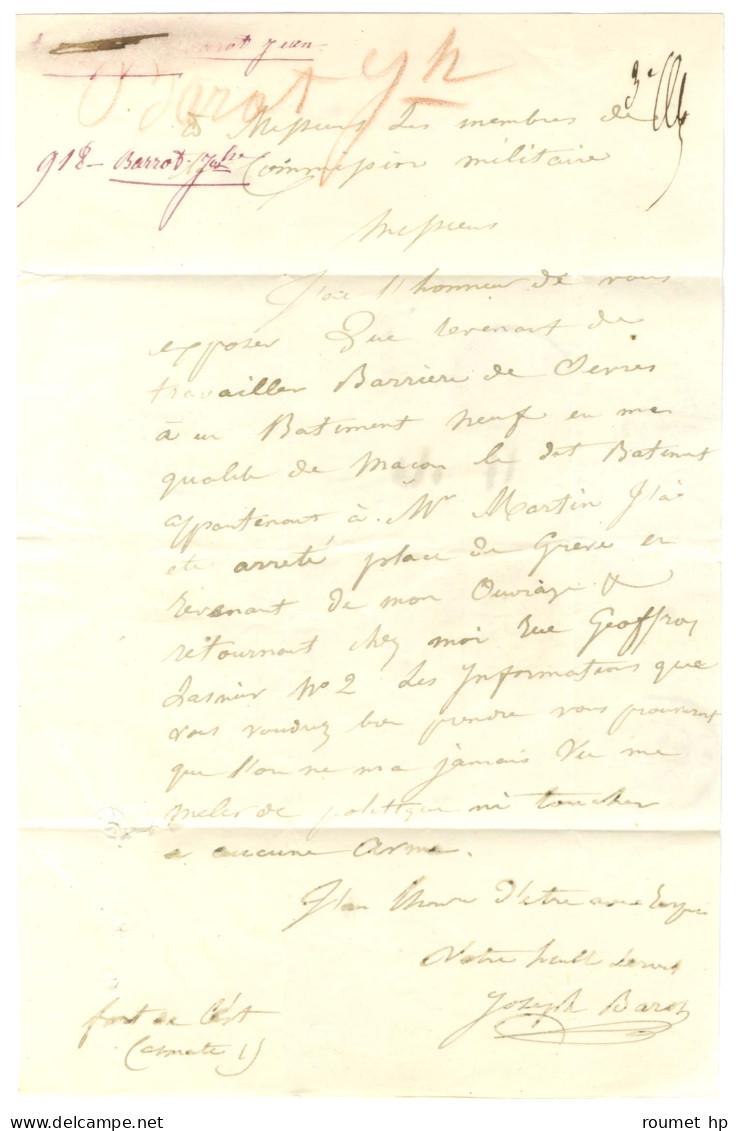 Barot Jean
Barot Jh
à Messieurs Les membres de la
918 - Barrot
Commission militaire
Messieurs
J'ai l'honneur de vous
exposer Que revenant de
travailler Barriere de Sevres
à un Batiment neuf en ma
qualité de macon le dit Batiment
appartenant à Mr Martin J'ai
ete arreté place de Greve en
revenant de mon Ouvrage &
retournant chez moi rue Geoffroy
Lasnier No 2 Les Informations que
vous voudrez bien prendre vous prouveront
que l'on ne ma jamais Vu me
meler de politique ni toucher
a aucune arme.
J'ai lhonneur D'etre avec
Votre humble
Joseph Barot
fort de l'est
(casmate 1)
roumet hp